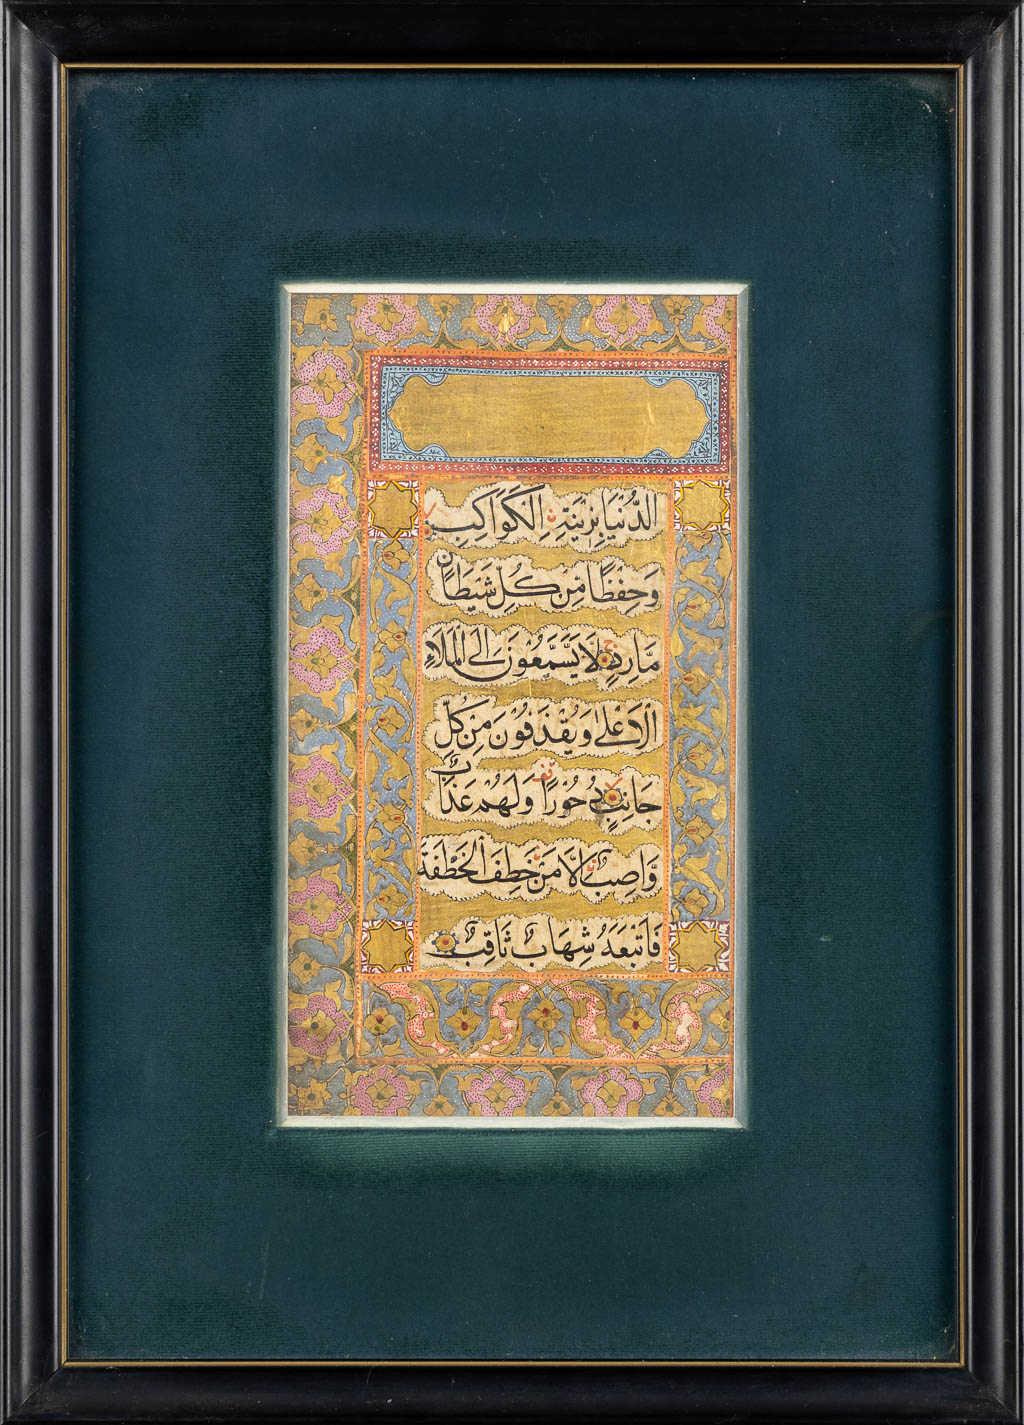 الدُّنْيَا بِزِينَةِ ۨالْكَوَاكِبِ
وَحِفْظًا مِّن كُلِّ شَيْطَانٍ
مَّارِدٍ لَا يَسَّمَّعُونَ إِلَى الْمَلَاءِ
الْأَعْلٰى وَيُقْذَفُونَ مِنْ كُلِّ
جَانِبٍ دُحُورًا وَلَهُمْ عَذَابٌ
وَاصِبٌ إِلَّا مَنْ خَطِفَ الْخَطْفَةَ
فَاَتْبَعَهُ شِهَابٌ ثَاقِبٌ